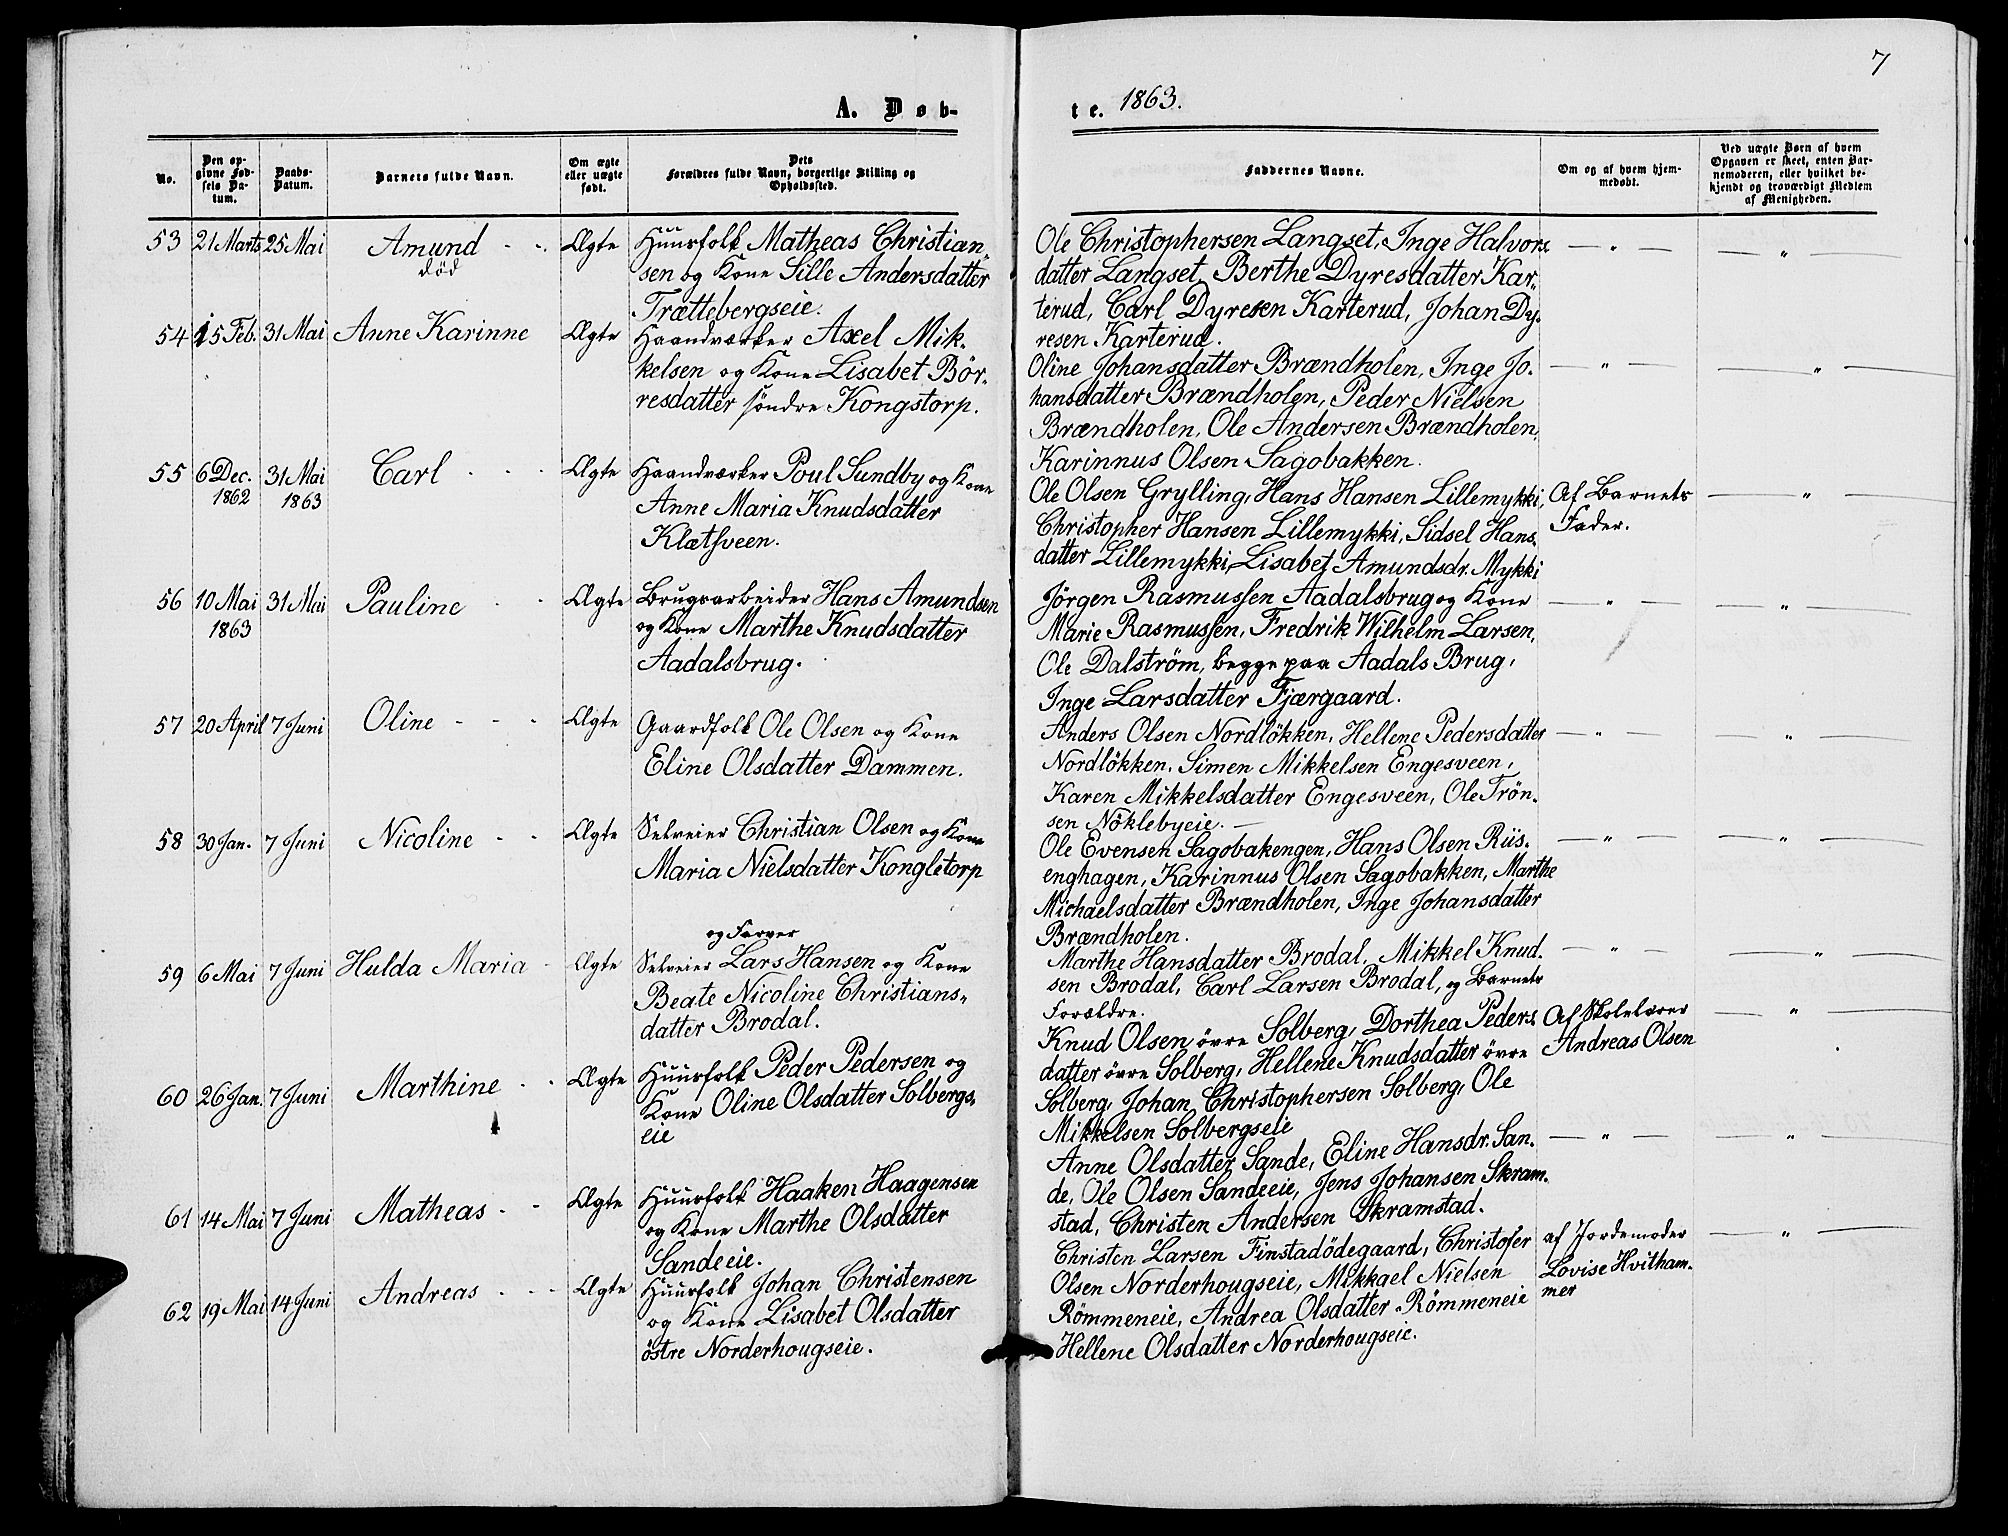 7
A. Døb-
te. 1863.
No.
Den op-
givne Fød-
sels Da-
tum.
Daabs-
Datum.
Barnets fulde Navn.
Om ægte
eller uægte
født.
Dets
Forældres fulde Navn, borgerlige Stilling og
Opholdssted.
Faddernes Navne.
Om og af hvem hjem-
medøbt.
Ved uægte Børn af hvem
Opgaven er skeet, enten Bar-
nemoderen, eller hvilket be-
kjendt og troværdigt Medlem
af Menigheden.
53 21 Marts 25 Mai Amund - - Ægte Huusfolk Matheas Christian-
død
sen og Kone Sille Andersdatter
Trættebergseie.
Ole Christophersen Langset, Inge Halvors- — „ — — „ —
datter Langset, Berthe Dyresdatter Kar-
terud, Carl Dyresen Karterud, Johan Dy-
resen Karterud.
54 15 Feb. 31 Mai Anne Karinne Ægte Haandværker Axel Mik-
kelsen og Kone Lisabet Bör-
resdatter söndre Kongstorp.
Oline Johansdatter Brændholen, Inge Jo- — „ — — „ —
hansdatter Brændholen, Peder Nielsen
Brændholen, Ole Andersen Brændholen,
Karinnus Olsen Sagobakken.
55 6 Dec. 31 Mai Carl - - - Ægte Haandværker Poul Sundby og Kone
1862 1863 Anne Maria Knudsdatter
Klætsveen.
Ole Olsen Grylling, Hans Hansen Lillemykki, Af Barnets — „ —
Christopher Hansen Lillemykki, Sidsel Hans- Fader.
datter Lillemykki, Lisabet Amundsdr. Mykki
56 10 Mai 31 Mai Pauline - - Ægte Brugsarbeider Hans Amundsen
1863 og Kone Marthe Knudsdatter
Aadalsbrug.
Jörgen Rasmussen Aadalsbrug og Kone — „ — — „ —
Marie Rasmussen, Fredrik Wilhelm Larsen,
Ole Dalström, begge paa Aadals Brug,
Inge Larsdatter Fjærgaard.
57 20 April 7 Juni Oline - - - Ægte Gaardfolk Ole Olsen og Kone
Eline Olsdatter Dammen.
Anders Olsen Nordlökken, Hellene Pedersdatter — „ — — „ —
Nordlökken, Simen Mikkelsen Engesveen,
Karen Mikkelsdatter Engesveen, Ole Trön-
sen Nöklebyeie. —
58 30 Jan. 7 Juni Nicoline - - Ægte Selveier Christian Olsen og Kone
Maria Nielsdatter Kongletorp
Ole Evensen Sagobakengen, Hans Olsen Riis- — „ — — „ —
enghagen, Karinnus Olsen Sagobakken, Marthe
Michaelsdatter Brændholen, Inge Johansdatter
Brændholen.
og Farver
59 6 Mai 7 Juni Hulda Maria - Ægte Selveier Lars Hansen og Kone
Beate Nicoline Christians-
datter Brodal.
Marthe Hansdatter Brodal, Mikkel Knud- — „ — — „ —
sen Brodal, Carl Larsen Brodal, og Barnets
Forældre.
60 26 Jan. 7 Juni Marthine - - Ægte Huusfolk Peder Pedersen og
Kone Oline Olsdatter Solbergs-
eie
Knud Olsen övre Solberg, Dorthea Peders- Af Skolelærer — „ —
datter övre Solberg, Hellene Knudsdatter övre Andreas Olsen
Solberg, Johan Christophersen Solberg, Ole
Mikkelsen Solbergseie
61 14 Mai 7 Juni Matheas - - Ægte Huusfolk Haaken Haagensen
og Kone Marthe Olsdatter
Sandeeie.
Anne Olsdatter Sande, Eline Hansdr. San- — „ — — „ —
de, Ole Olsen Sandeeie, Jens Johansen Skram-
stad, Christen Andersen Skramstad.
62 19 Mai 14 Juni Andreas - - - Ægte Huusfolk Johan Christensen
og Kone Lisabet Olsdatter
östre Norderhougseie.
Christen Larsen Finstadödegaard, Christofer af Jordemoder — „ —
Olsen Norderhougseie, Mikkael Nielsen Lovise Hvitham-
Römmeneie, Andrea Olsdatter Römmeneie mer
Hellene Olsdatter Norderhougseie.